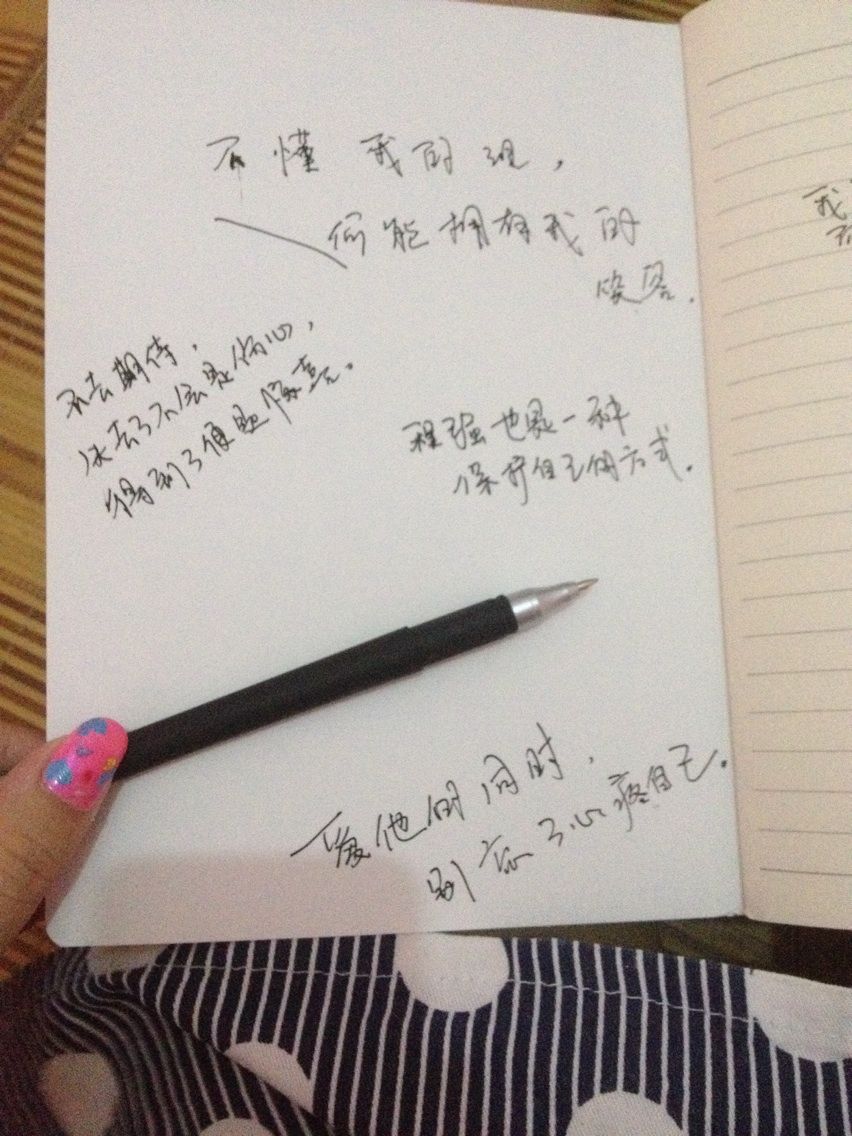 不懂我的泪，
何能拥有我的
笑容.
不去期待，
失去了不会是伤心，
得到了便是惊喜。
程强也是一种
保护自己的方式.
爱他的同时，
别忘了心疼自己.
我